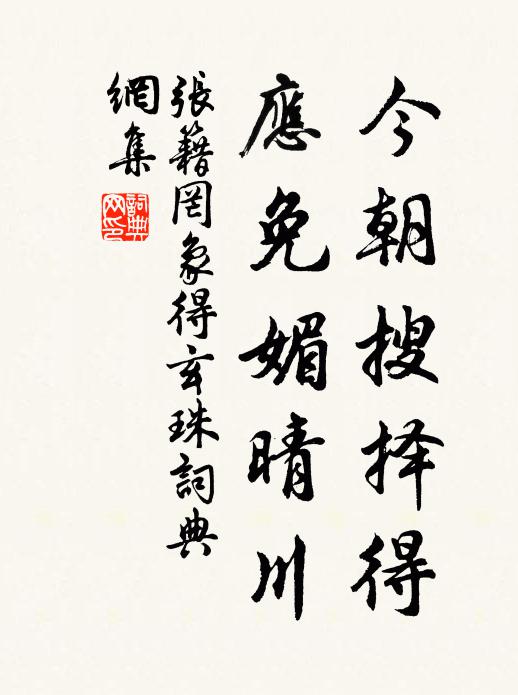 今朝搜择得
應免媚晴川
張籍罔象得玄珠詞典
網集
詞典
网印